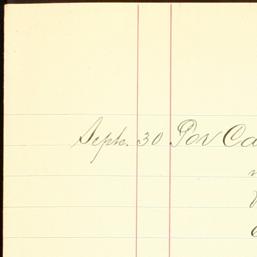 Sept. 30 Por Ca